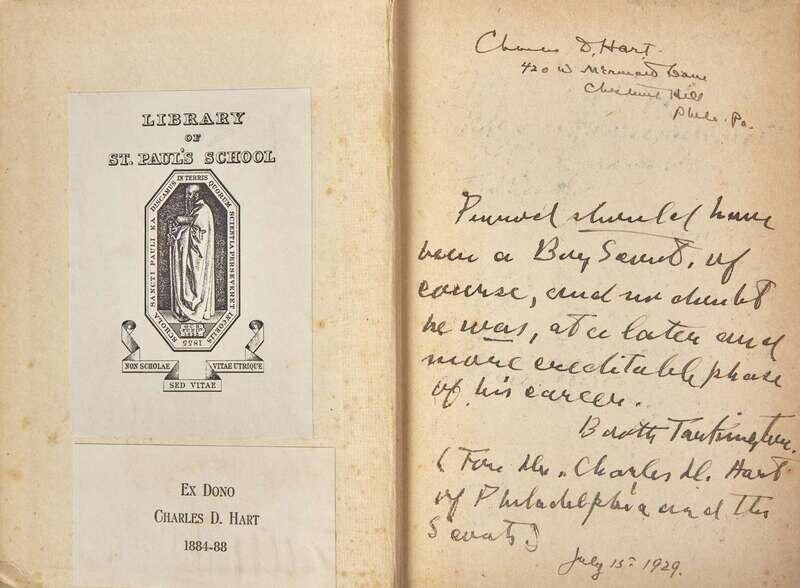 LIBRARY
OF
ST. PAUL'S SCHOOL
SCHOLA SANCTI PAULI EA DISCAMUS IN TERRIS QUORUM SCIENTIA PERSEVERET IN COELIS
1855
NON SCHOLAE
VITAE UTRIQUE
SED VITAE
EX DONO
CHARLES D. HART
1884-88
Charles D. Hart
420 W Mermaid Lane
Chestnut Hill
Phila. Pa.
Penrod should have
been a Boy Scout, of
course, and no doubt
he was, at a later and
more creditable phase
of his career.
Booth Tarkington.
(For Dr. Charles D. Hart
of Philadelphia and the
Scouts)
July 15th 1929.